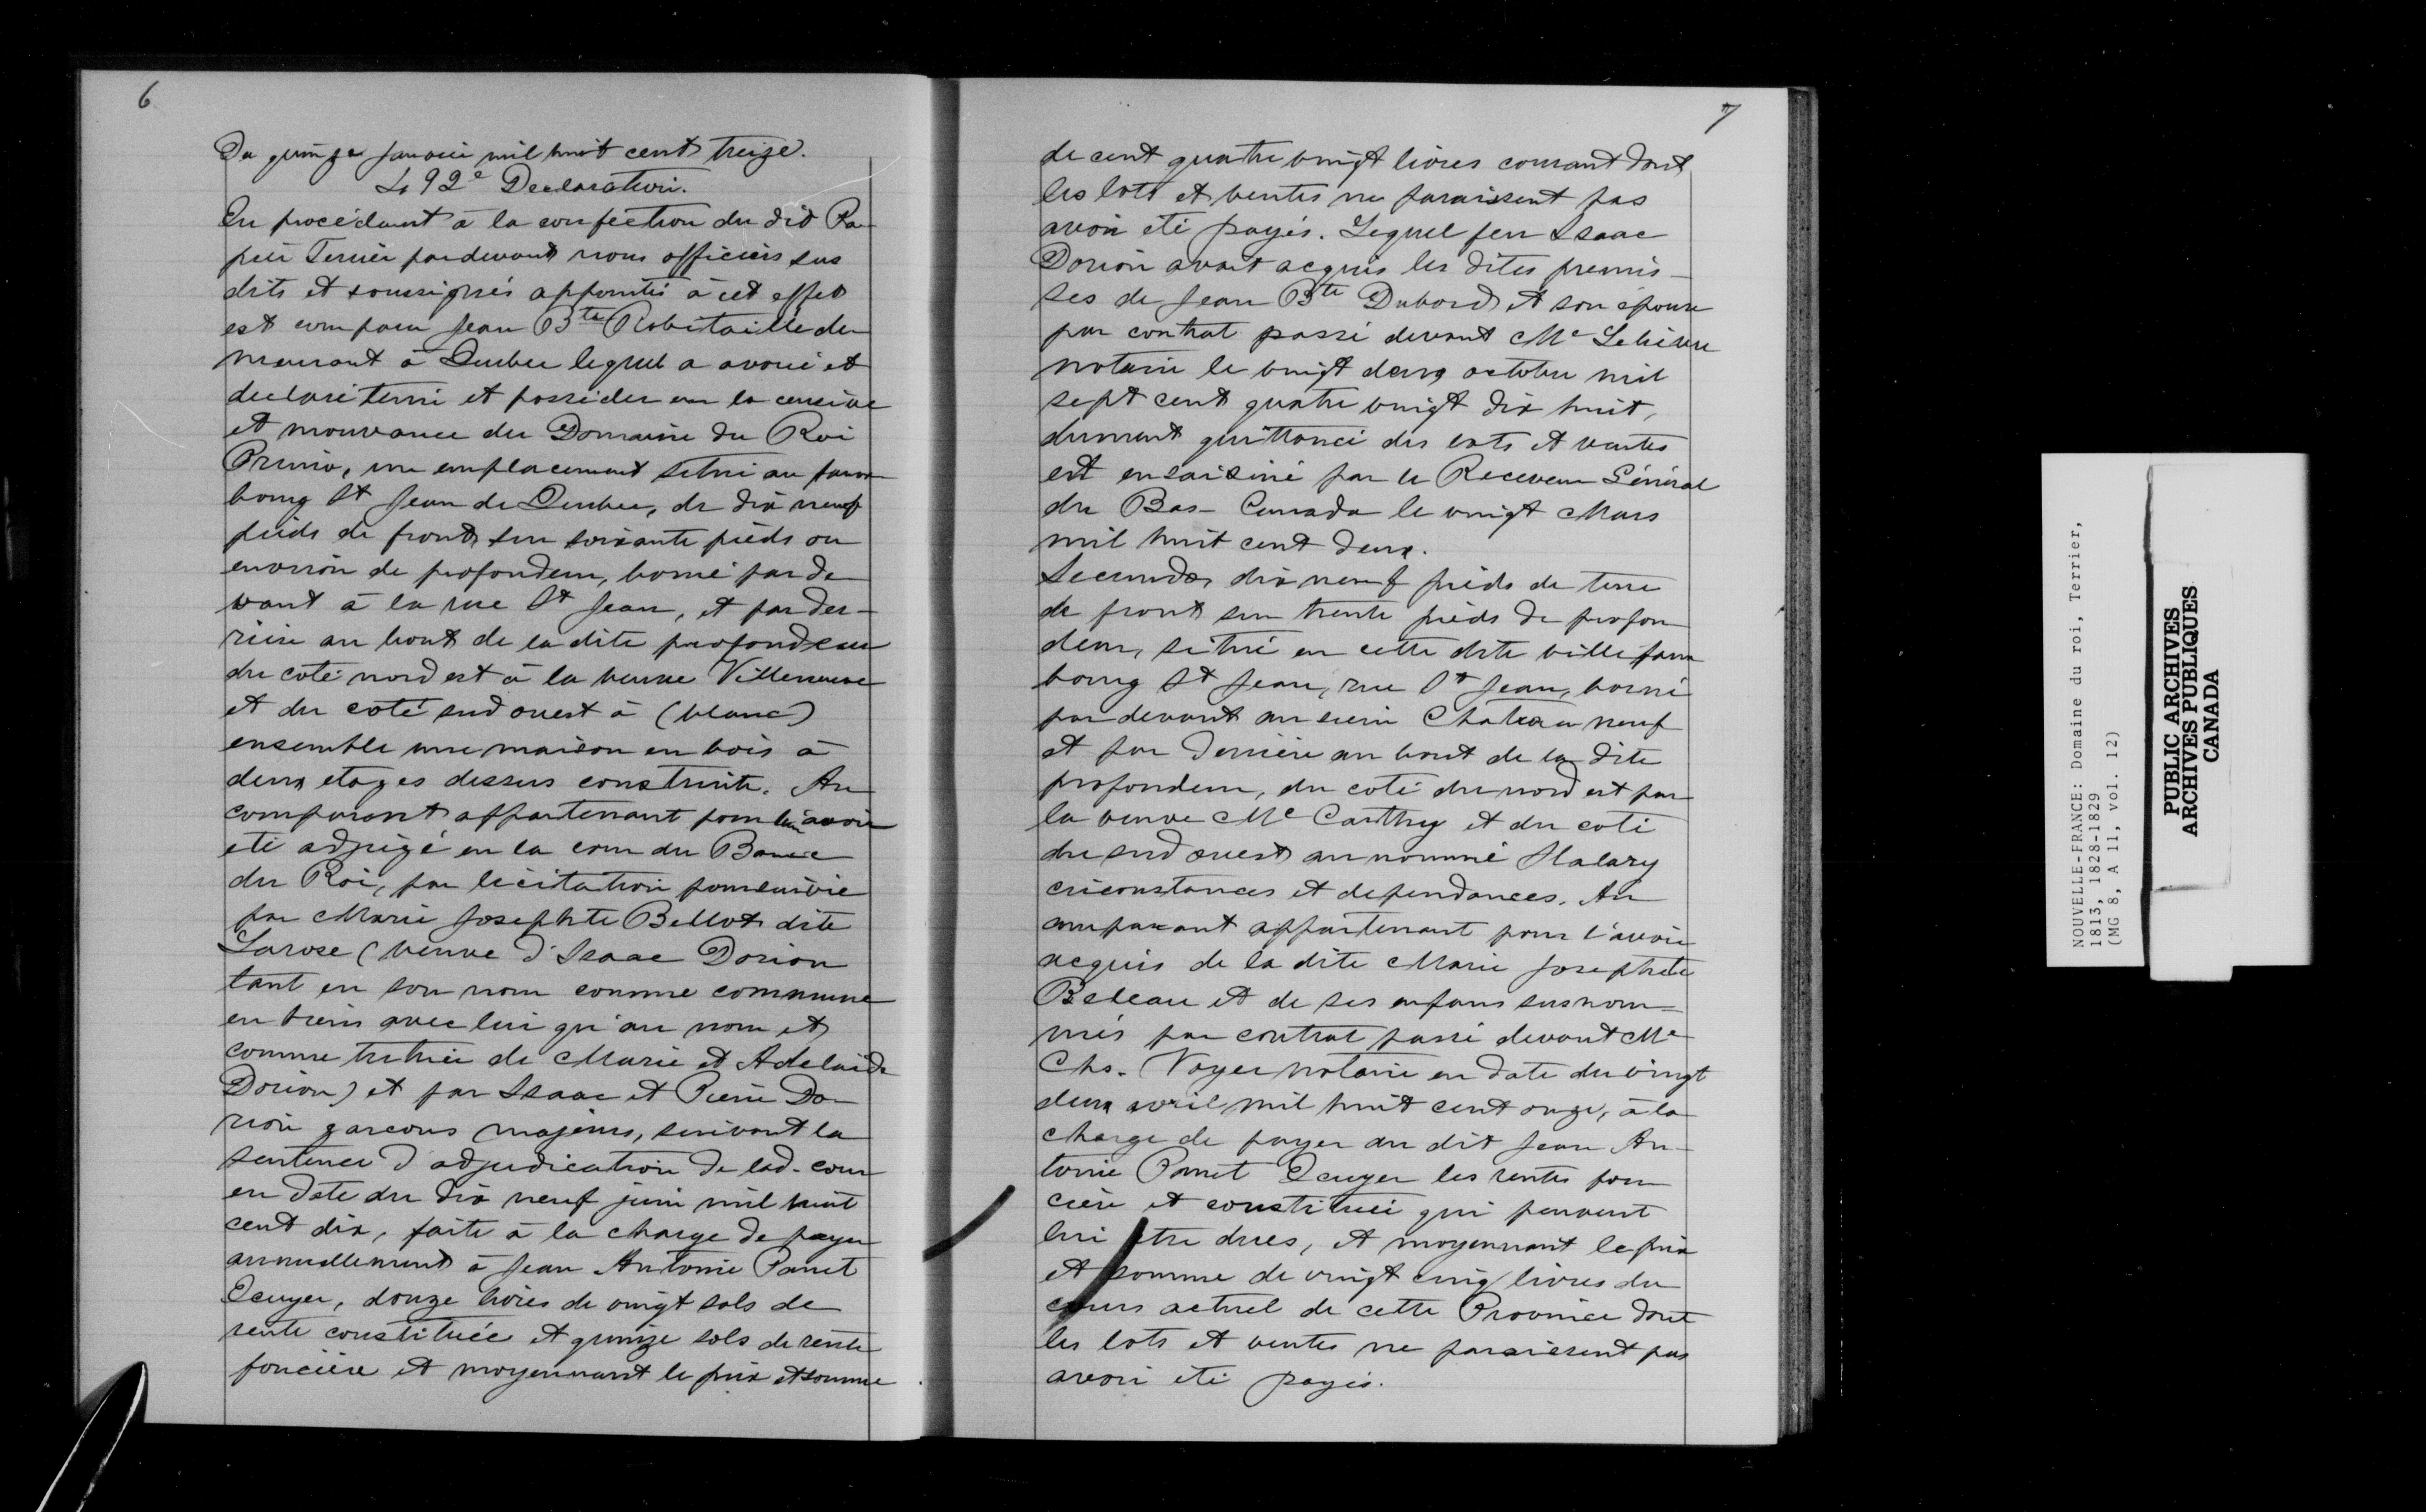 6
Du quinze Janvier mil huit cent treize.
La 92e Declaration.
En procédant à la confection du dit Pa-
pier Terrier pardevant nous officiers sus
dits et soussignés appointés à cet effet
est comparu Jean Bte Robitaille de-
meurant à Quebec lequel a avoué et
declaré tenir et posséder en la censive
et mouvance du Domaine du Roi
Primo, un emplacement situé au faux-
bourg St Jean de Quebec, de dix neuf
pieds de front sur soixante pieds ou
environ de profondeur, borné par de-
vant à la rue St Jean, et par der-
rière au bout de la dite profondeur
du coté nord est à la veuve Villeneuve
et du coté sud ouest à (blanc)
ensemble une maison en bois à
deux etages dessus construite. Au
comparant appartenant pour lui avoir
eté adjugé en la cour du Banc
du Roi, par licitation poursuivie
par Marie Josephte Bellot dite
Larose (veuve d'Isaac Dorion
tant en son nom comme commune
en biens avec lui qu'au nom et
comme tutrice de Marie et Adelaide
Dorion) et par Isaac et Pierre Do-
rion garcons majeurs, suivant la
sentence d'adjudication de lad. cour
en date du dix neuf juin mil huit
cent dix, faite à la charge de payer
annuellement à Jean Antoine Panet
Ecuyer, douze livres de vingt sols de
rente constituée et quinze sols de rente
foncière et moyennant le prix et somme
7
de cent quatre vingt livres courant dont
les lots et ventes ne paraissent pas
avoir eté payés. Lequel feu Isaac
Dorion avait acquis les dites premis-
ses de Jean Bte Dubord et son épouse
par contrat passé devant Me Lelièvre
notaire le vingt deux octobre mil
sept cent quatre vingt dix huit,
dument quittancé des lots et ventes
et ensaisiné par le Receveur Général
du Bas-Canada le vingt Mars
mil huit cent deux.
Secundo, dix neuf pieds de terre
de front sur trente pieds de profon
deur, situé en cette dite ville faux
bourg St Jean, rue St Jean, borné
par devant au sieur Chateauneuf
et par derrière au bout de la dite
profondeur, du coté du nord est par
la veuve Mc Carthy et du coté
du sud ouest au nommé Halary
circonstances et dependances. Au
comparant appartenant pour l'avoir
acquis de la dite Marie Josephte
Beleau et de ses enfans susnom-
més par contrat passé devant Me
Chs. Voyer notaire en date du vingt
deux avril mil huit cent onze, à la
charge de payer au dit Jean An-
toine Panet Ecuyer les rentes fon
cière et constituée qui peuvent
lui etre dues, et moyennant le prix
et somme de vingt cinq livres du
cours actuel de cette Province dont
les lots et ventes ne paraissent pas
avoir eté payés.
NOUVELLE-FRANCE: Domaine du roi, Terrier,
1813, 1828-1829
(MG 8, A 11, vol. 12)
PUBLIC ARCHIVES
ARCHIVES PUBLIQUES
CANADA